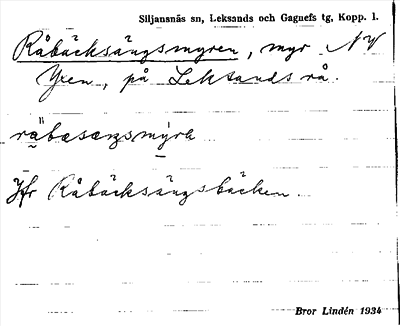 Siljansnäs sn, Leksands och Gagnefs tg, Kopp. l.
Råbäcksängsmyren, myr NV
Yxen, på Leksands rå.
Jfr Råbäcksängsbäcken.
Bror Lindén 1934